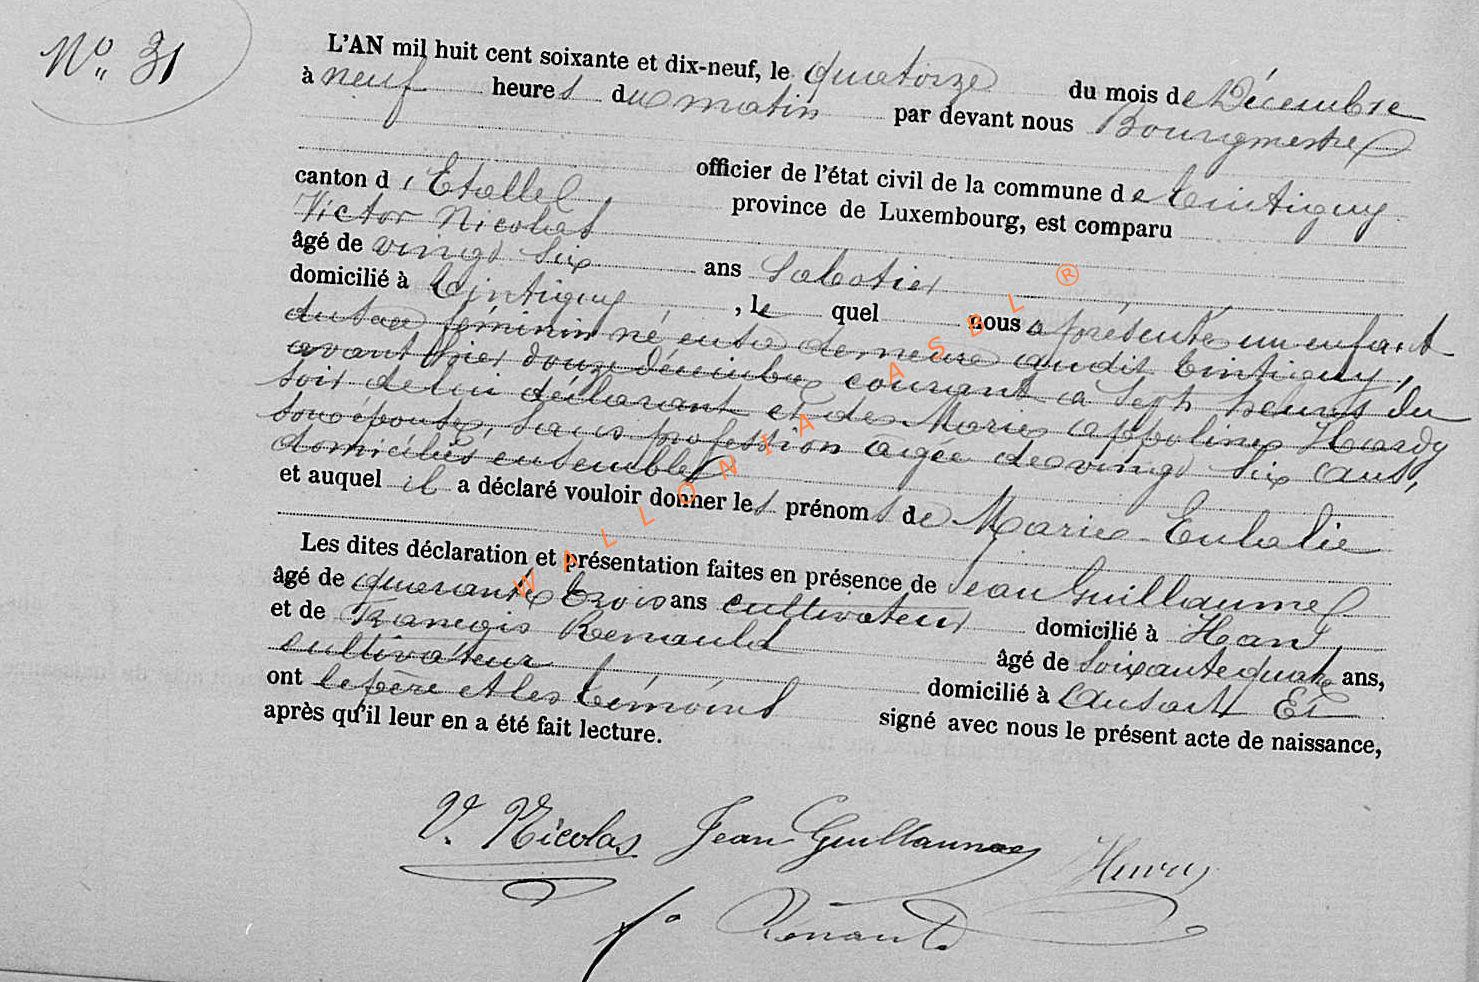 Nº 31
L'AN mil huit cent soixante et dix-neuf, le quatorze du mois de Décembre
à neuf heures du matin par devant nous Bourgmestre
officier de l'état civil de la commune de Tintigny
canton d'Etalle province de Luxembourg, est comparu
Victor Nicolas
âgé de vingt six ans Sabotier
domicilié à Tintigny, le quel nous a présenté un enfant
du sexe féminin né en sa demeure audit Tintigny,
avant hier douze décembre courant à sept heures du
soir de lui déclarant et de Marie Appoline Hardy
son épouse, sans profession agée de vingt six ans,
domiciliés ensemble
et auquel il a déclaré vouloir donner les prénoms de Marie Eulalie
Les dites déclaration et présentation faites en présence de Jean Guillaume
âgé de quarante trois ans cultivateur domicilié à Han,
et de François Renauld âgé de soixante quatre ans,
cultivateur domicilié à Ansart Et
ont le père et les témoins signé avec nous le présent acte de naissance,
après qu'il leur en a été fait lecture.
V. Nicolas Jean Guillaume Henry
Renauld
WALLONIA ASBL ®